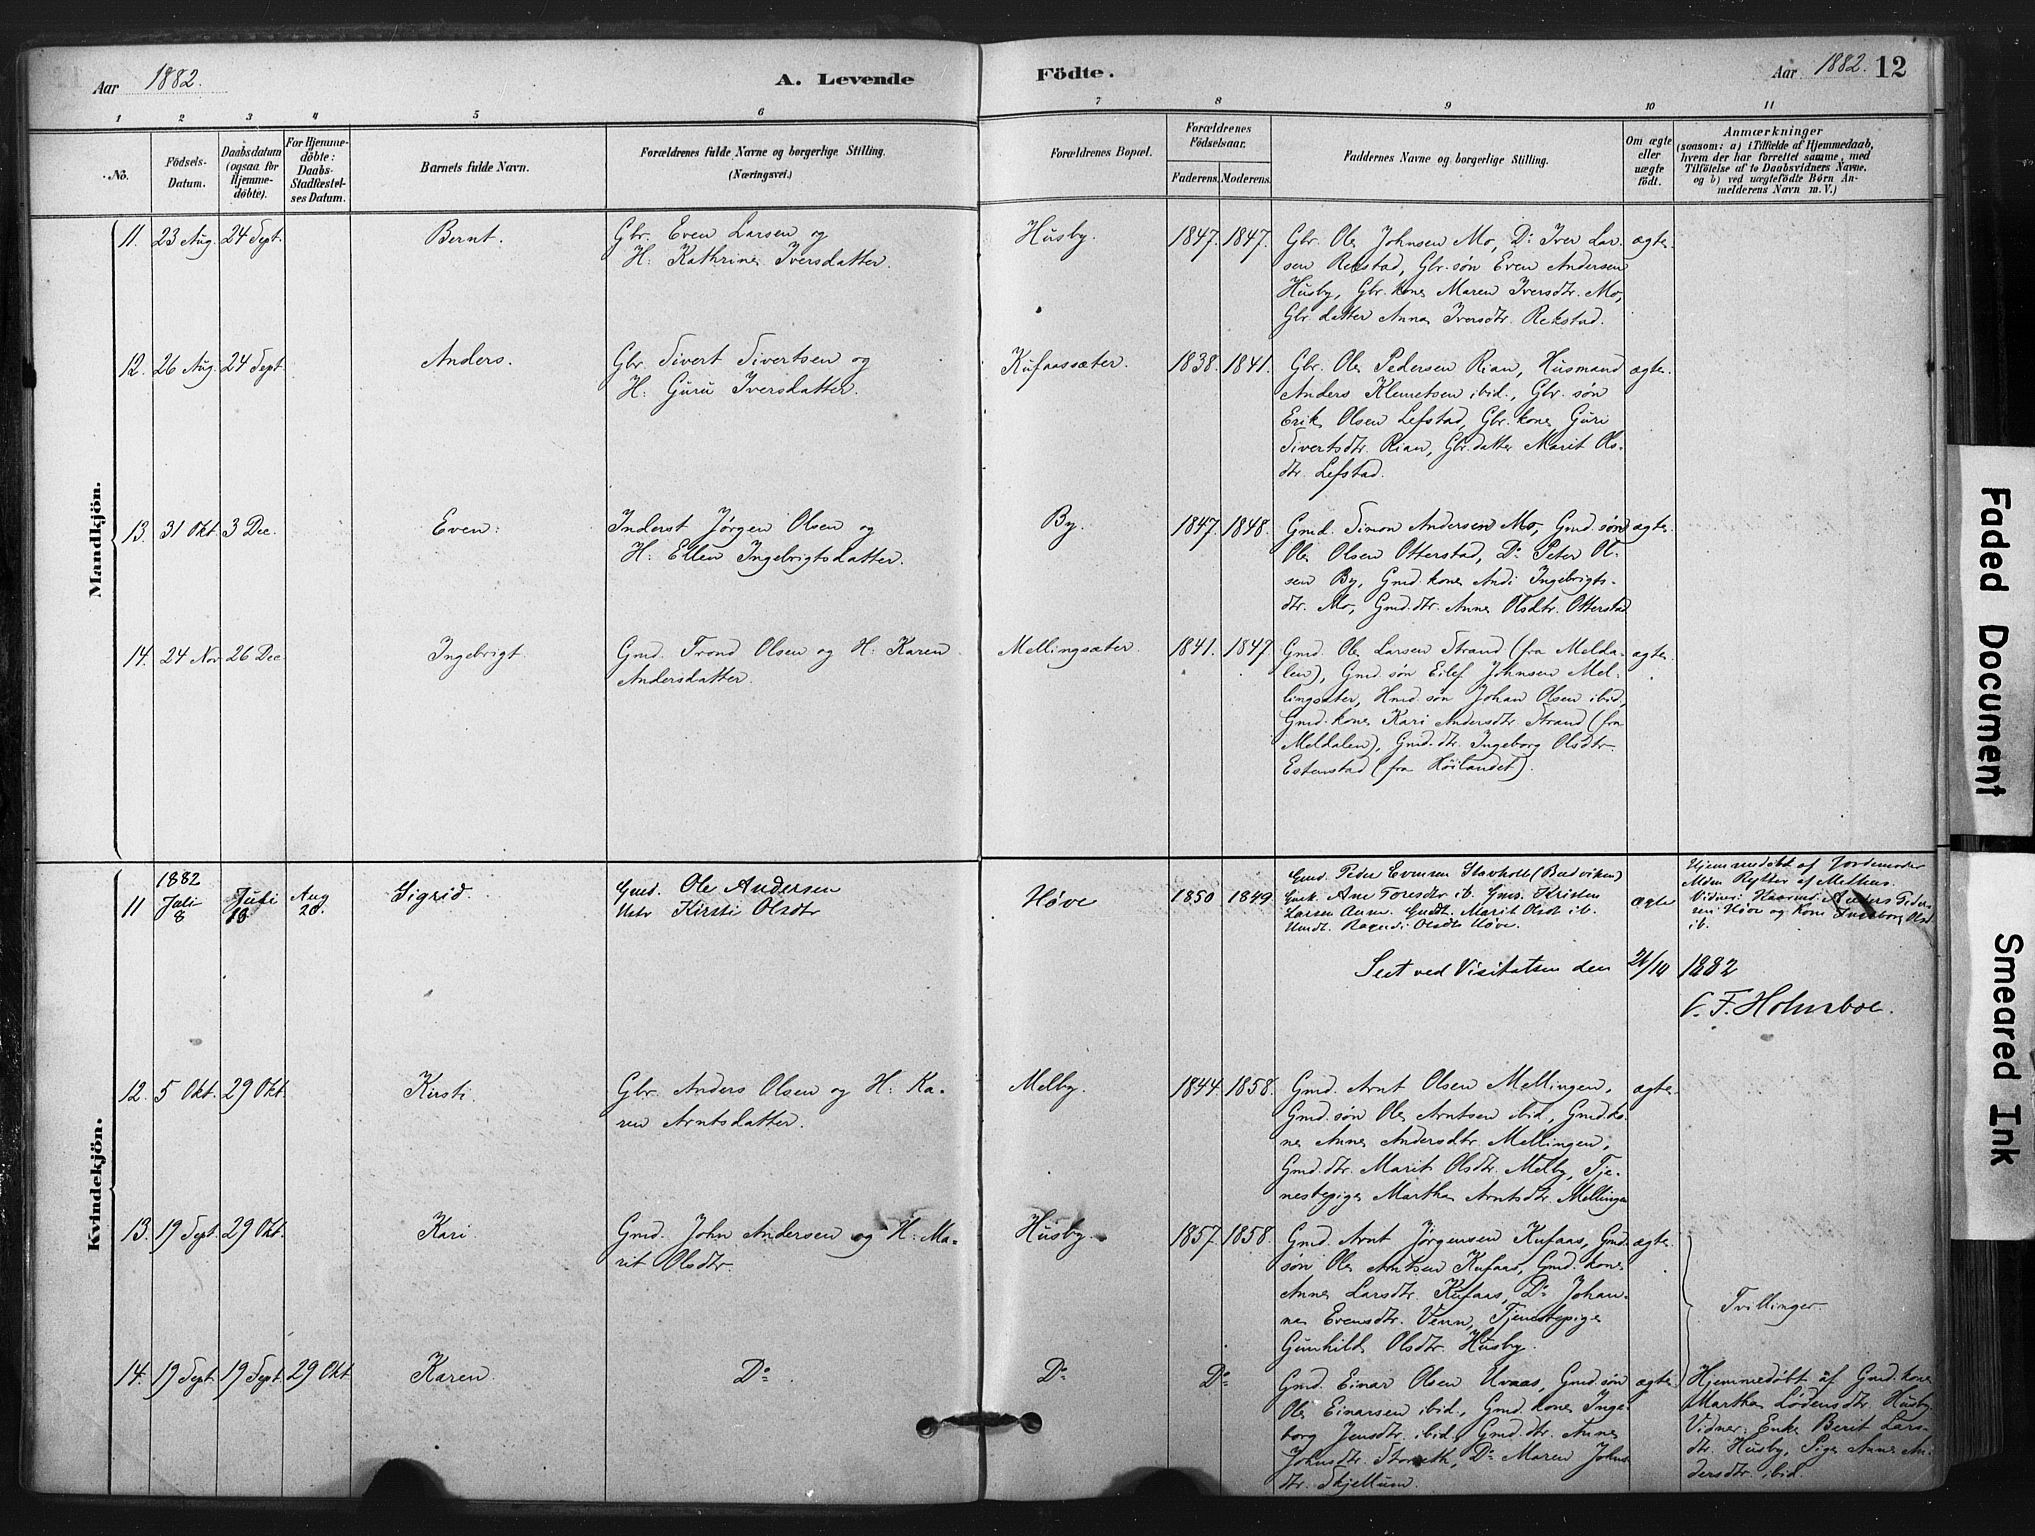 Aar 1882. A. Levende Födte. Aar 1882. 12
1 2 3 4 5 6 7 8 9 10 11
No.
Födsels-
Datum.
Daabsdatum
(ogsaa for
Hjemme-
döbte).
For Hjemme-
döbte:
Daabs-
Stadfæstel-
ses Datum.
Barnets fulde Navn.
Forældrenes fulde Navne og borgerlige Stilling.
(Næringsvei.)
Forældrenes Bopæl.
Forældrenes
Födselsaar.
Faderens. Moderens.
Faddernes Navne og borgerlige Stilling.
Om ægte
eller
uægte
födt.
Anmærkninger
(saasom: a) i Tilfælde af Hjemmedaab,
hvem der har forrettet samme, med
Tilföielse af to Daabsvidners Navne,
og b) ved uægtefödte Börn An-
melderens Navn m. V.)
Mandkjön.
11. 23 Aug. 24 Sept. Bernt.
Gbr. Even Larsen og
H: Kathrine Iversdatter.
Husby. 1847. 1847.
Gbr. Ole Johnsen Mo, Do Iver Lar-
sen Rekstad, Gbr. søn Even Andersen
Husby, Gbr. kone Maren Iversdtr. Mo,
Gbr datter Anna Iversdtr. Rekstad.
ægte.
12. 26 Aug. 24 Sept Anders.
Gbr. Sivert Sivertsen og
H: Guru Iversdatter.
Kufaassæter. 1838. 1841.
Gbr. Ole Pedersen Rian, Husmand
Anders Klemetsen ibid., Gbr. søn
Erik Olsen Lefstad, Gbr. kone Guri
Sivertsdtr. Rian, Gbr. datter Marit Ols-
dtr. Lefstad.
ægte.
13. 31 Okt. 3 Dec. Even.
Inderst Jørgen Olsen og
H: Ellen Ingebrigtsdatter.
By. 1847. 1848.
Gmd. Simon Andersen Mo, Gmd. søn
Ole Olsen Otterstad, Do Peter Ol-
sen By, Gmd. kone Andi Ingebrigts-
dtr. Mo, Gmd. dtr. Anne Olsdtr. Otterstad
ægte.
14. 24 Nov 26 Dec Ingebrigt.
Gmd. Trond Olsen og H: Karen
Andersdatter.
Mellingsæter. 1841. 1847.
Gmd. Ole Larsen Strand (fra Melda-
len), Gmd søn Eilef Johnsen Mel-
lingsæter, Hmd. søn Johan Olsen ibid,
Gmd. kone Kari Andersdtr Strand (fra
Meldalen), Gmd. dtr. Ingeborg Olsdtr.
Estenstad (fra Høilandet).
ægte.
Kvindekjön.
11 1882
Juli
8
Juli
Aug
20.
Sigrid.
Gmd. Ole Andersen
Kirsti Olsdtr
Høve 1850 1849
Gmd. Peder Evensen
Ane Toresdtr ib. Kristen
Larsen Marit Olsdt ib.
Olsdtr Høve.
ægte
Hjemmedøbt af Jordemoder
Vidner: Anders
Høve og Kone Ingeborg Olsd
ib.
Seet ved Visitatsen den 21/10 1882
C. F. Holmboe.
12. 5 Okt. 29 Okt. Kirsti.
Gbr. Anders Olsen og H: Ka-
ren Arntsdatter.
Melby. 1844. 1858.
Gmd. Arnt Olsen Mellingen,
Gmd. søn Ole Arntsen ibid., Gmd. ko-
ne Anne Andersdtr. Mellingen,
Gmd. dtr. Marit Olsdtr. Melby, Tje-
nestepige Martha Arntsdtr. Mellingen
ægte.
13. 19 Sept. 29 Okt. Kari.
Gmd. John Andersen og H: Ma-
rit Olsdtr.
Husby. 1857. 1858.
Gmd. Arnt Jørgensen Kufaas, Gmd.
søn Ole Arntsen Kufaas, Gmd. kone
Anne Larsdtr. Kufaas, Do Johan-
ne Evensdtr. Venn, Tjenestepige
Gunhild Olsdtr. Husby.
ægte.
Tvillinger.
14. 19 Sept. 19 Sept. 29 Okt Karen.
Do Do Do
Gmd. Einar Olsen Uvaas, Gmd. søn
Ole Einarsen ibid., Gmd. kone Inge-
borg Jensdtr. ibid. Gmd. dtr. Anne
Johnsdtr. Do Maren Johns-
dtr. Skjellum.
ægte.
Hjemmedøbt af Gmd. kone
Martha Lødensdtr. Husby.
Vidner: Enke Berit Lars-
dtr. Husby, Pige Anne An-
dersdtr. ibid.
Faded Document
Smeared Ink